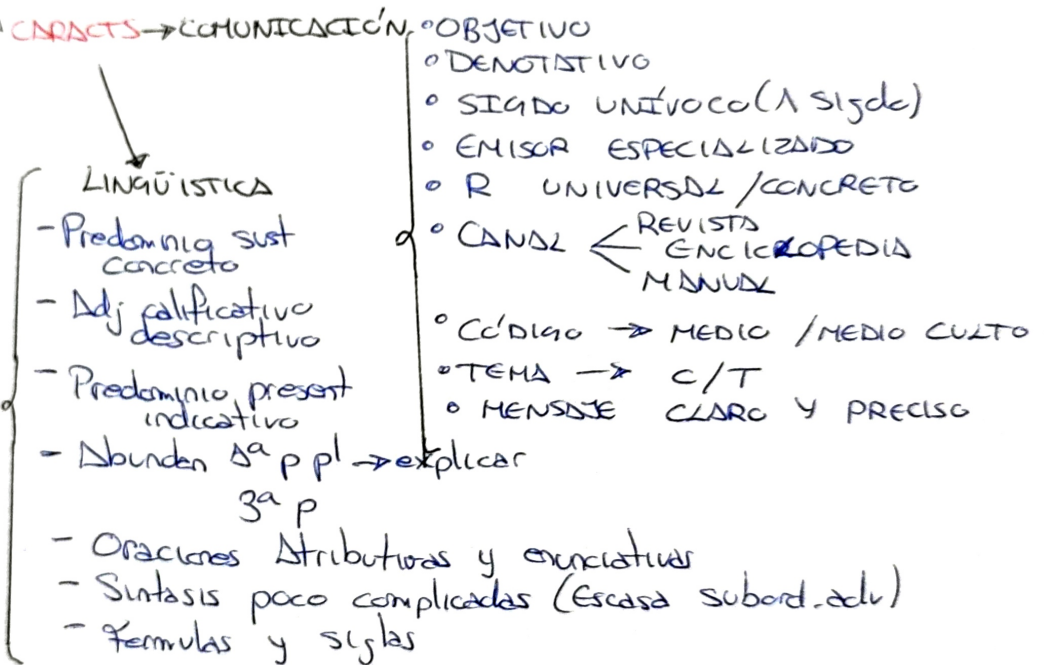 CARACTS → COMUNICACIÓN
° OBJETIVO
° DENOTATIVO
° SIGDO UNÍVOCO (1 sigdo)
° EMISOR ESPECIALIZADO
° R UNIVERSAL / CONCRETO
° CANAL
REVISTA
ENCICLOPEDIA
MANUAL
° CÓDIGO → MEDIO / MEDIO CULTO
° TEMA → C/T
° MENSAJE CLARO Y PRECISO
LINGÜISTICA
- Predominio sust
concreto
- Adj calificativo
descriptivo
- Predominio present
indicativo
- Abundan 1ª p pl → explicar
3ª p
- Oraciones Atributivas y enunciativas
- Sintasis poco complicadas (Escasa subord. adv)
- Formulas y siglas